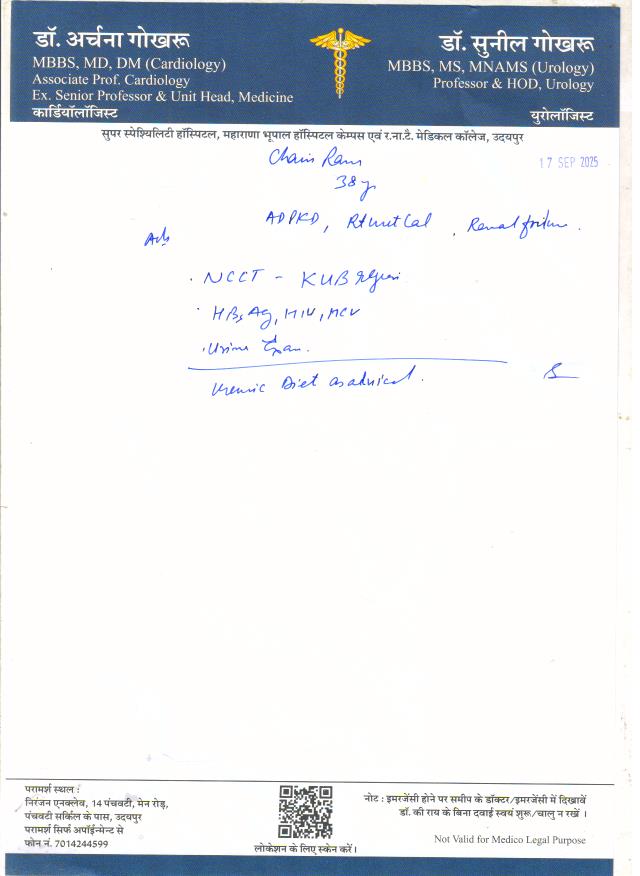 डॉ. अर्चना गोखरू
MBBS, MD, DM (Cardiology)
Associate Prof. Cardiology
Ex. Senior Professor & Unit Head, Medicine
कार्डियॉलॉजिस्ट
डॉ. सुनील गोखरू
MBBS, MS, MNAMS (Urology)
Professor & HOD, Urology
युरोलॉजिस्ट
सुपर स्पेश्यिलिटी हॉस्पिटल, महाराणा भूपाल हॉस्पिटल केम्पस एवं र.ना.टै. मेडिकल कॉलेज, उदयपुर
17 SEP 2025
Ram
38 y
ADPKD, Rt Cal, Renal failure.
Adv
. NCCT - KUB region
. HBsAg, HIV, HCV
. Urine Exam.
Uremic Diet as advised.
परामर्श स्थल :
निरंजन एनक्लेव, 14 पंचवटी, मेन रोड़,
पंचवटी सर्किल के पास, उदयपुर
परामर्श सिर्फ अपॉईन्मेन्ट से
फोन नं. 7014244599
लोकेशन के लिए स्केन करें।
नोट : इमरजेंसी होने पर समीप के डॉक्टर/इमरजेंसी में दिखावें
डॉ. की राय के बिना दवाई स्वयं शुरू/चालु न रखें ।
Not Valid for Medico Legal Purpose